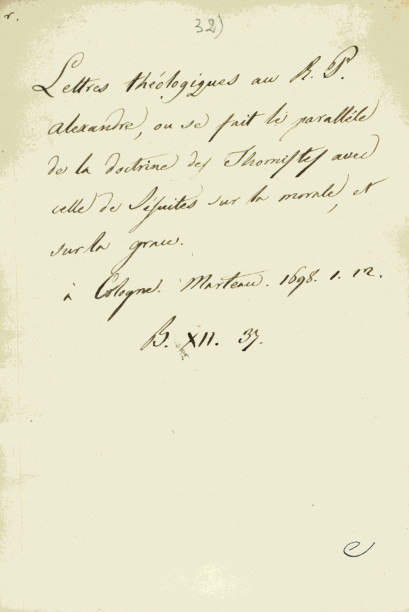 r.
32)
Lettres théologiques au R. P.
alexandre, ou se fait le parallèle
de la doctrine des Thomistes avec
celle de Jésuites sur la morale, et
sur la grace.
à Cologne. Marteau. 1698. 1. 12.
B. XII. 37.